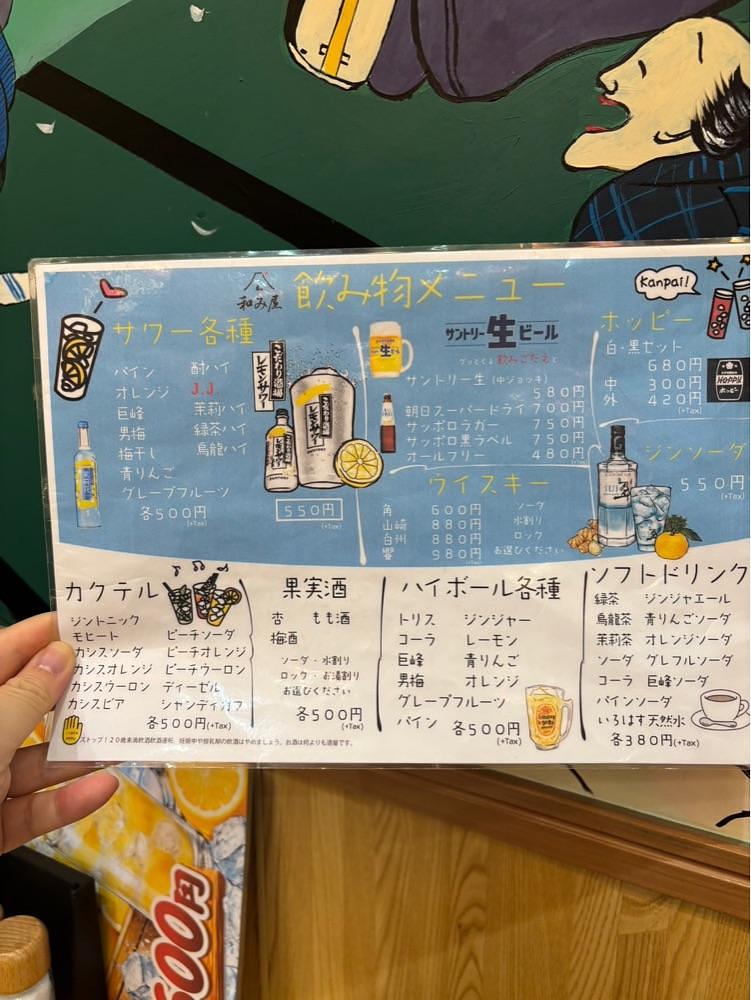 和み屋
飲み物メニュー
Kanpai!
サワー各種
パイン
オレンジ
巨峰
男梅
梅干し
青りんご
グレープフルーツ
酎ハイ
J.J.
茉莉ハイ
緑茶ハイ
烏龍ハイ
各500円
(+Tax)
こだわり酒場
レモンサワー
こだわり酒場
レモンサワー
550円
(+Tax)
サントリー生ビール
グッとくる飲みごたえと
サントリー生(中ジョッキ)
580円
朝日スーパードライ 700円
サッポロラガー 750円
サッポロ黒ラベル 750円
オールフリー 480円
ウイスキー
角 600円
山崎 880円
白州 880円
響 980円
(+Tax)
ソーダ
水割り
ロック
お選びください
ホッピー
白・黒セット
680円
中 300円
外 420円
(+Tax)
HOPPY
ホッピー
ジンソーダ
550円
(+Tax)
カクテル
ジントニック
モヒート
カシスソーダ
カシスオレンジ
カシスウーロン
カシスビア
ピーチソーダ
ピーチオレンジ
ピーチウーロン
ディーゼル
シャンディガフ
各500円(+Tax)
果実酒
杏 もも酒
梅酒
ソーダ・水割り
ロック・お湯割り
お選びください
各500円
(+Tax)
ハイボール各種
トリス ジンジャー
コーラ レーモン
巨峰 青りんご
男梅 オレンジ
グレープフルーツ
パイン 各500円
(+Tax)
ソフトドリンク
緑茶 ジンジャエール
烏龍茶 青りんごソーダ
茉莉茶 オレンジソーダ
ソーダ グレフルソーダ
コーラ 巨峰ソーダ
パインソーダ
いろはす天然水
各380円(+Tax)
ストップ!20歳未満飲酒飲酒運転。妊娠中や授乳期の飲酒はやめましょう。お酒は何よりも適量です。
500円